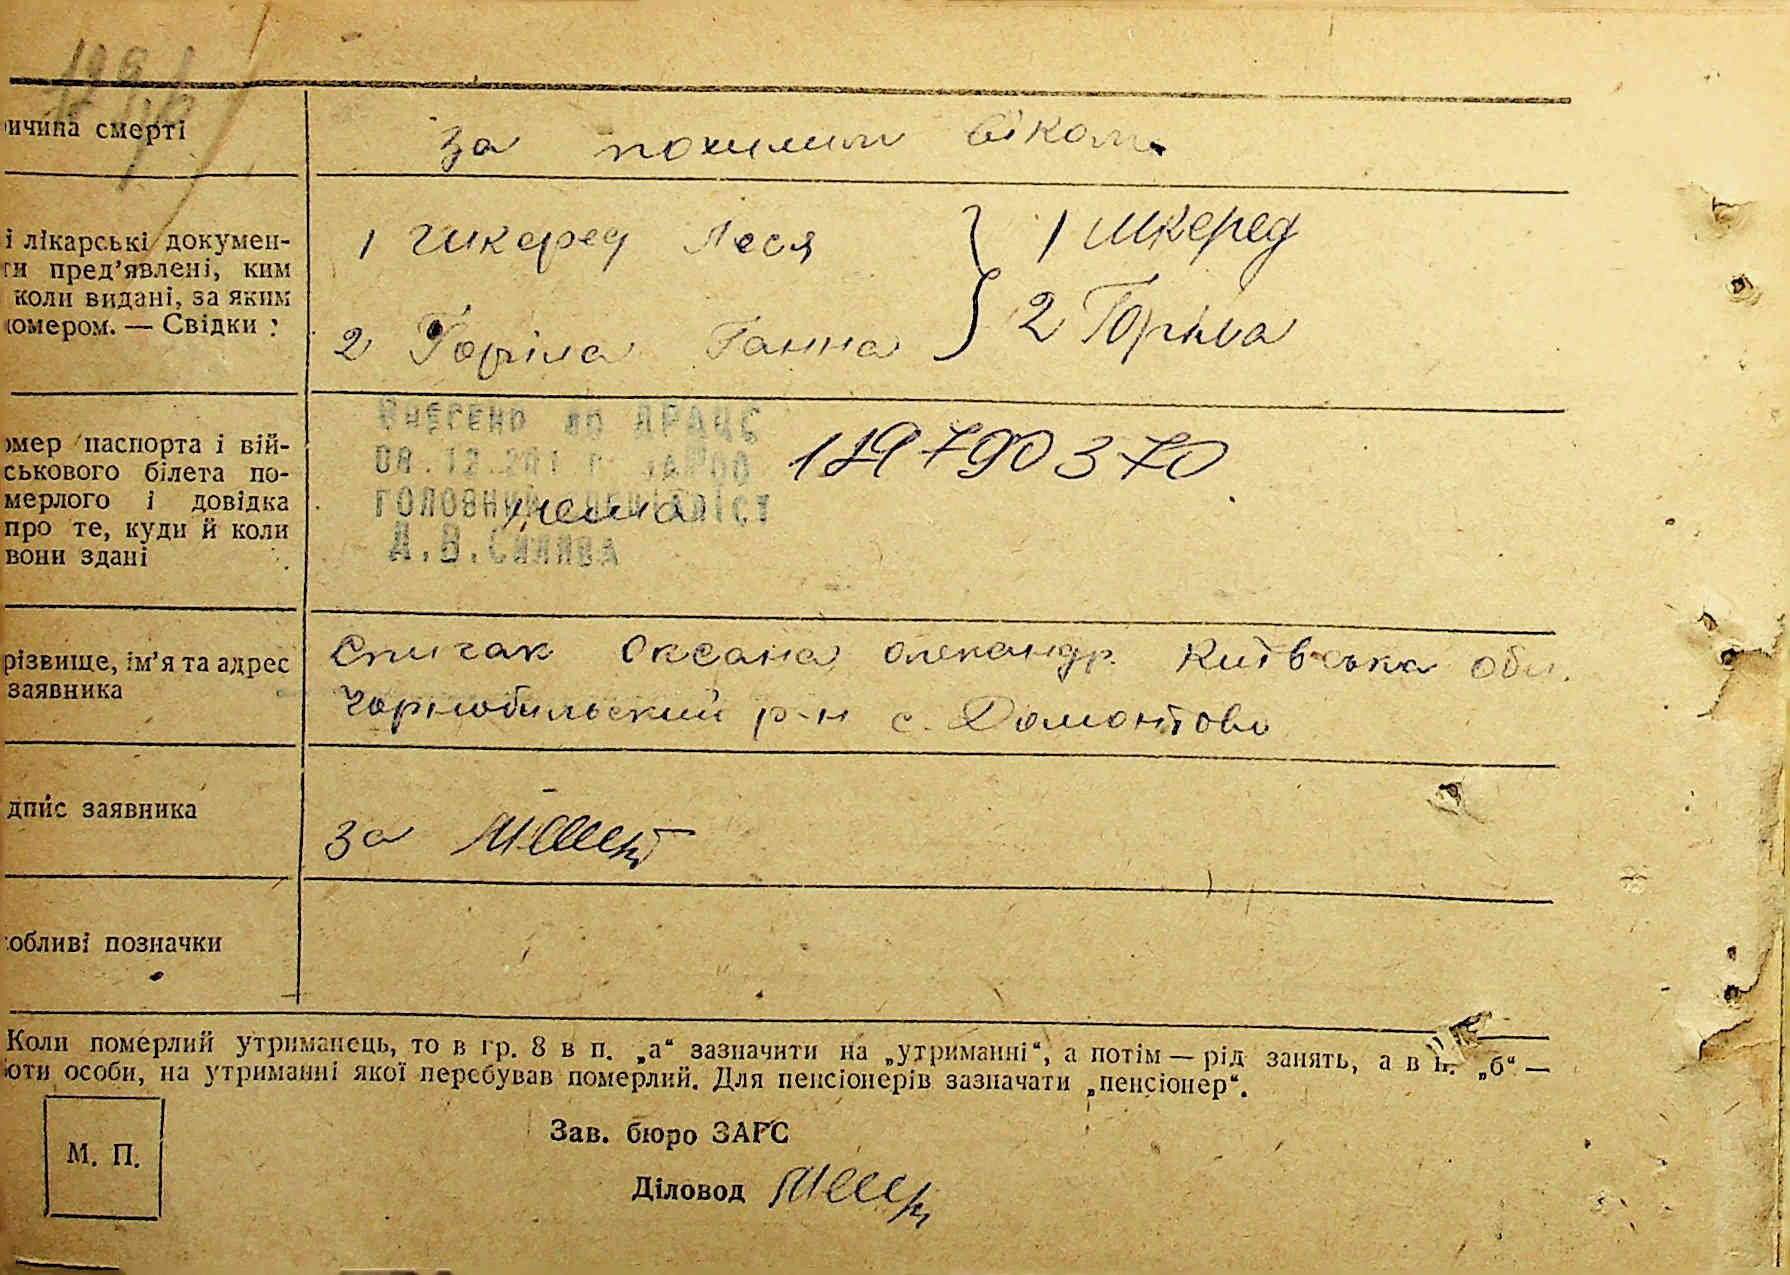 ичина смерті
за похилим віком.
і лікарські документи пред'явлені, ким
коли видані, за яким
номером. — Свідки :
1 Шкеред Леся } 1 Шкеред
2 Горіла Ганна } 2 Горіла
омер паспорта і вій-
ськового білета по-
мерлого і довідка
про те, куди й коли
вони здані
Внесено до ДРАЦС
головний спеціаліст
нема
різвище, ім'я та адрес
заявника
Спичак Оксана Олександр. Київська обл.
Чорнобильський р-н с. Домонтово
дпис заявника
за
обливі позначки
Коли померлий утриманець, то в гр. 8 в п. „а“ зазначити на „утриманні“, а потім — рід занять, а в п. „б“ —
оти особи, на утриманні якої перебував померлий. Для пенсіонерів зазначати „пенсіонер“.
М. П.
Зав. бюро ЗАГС
Діловод